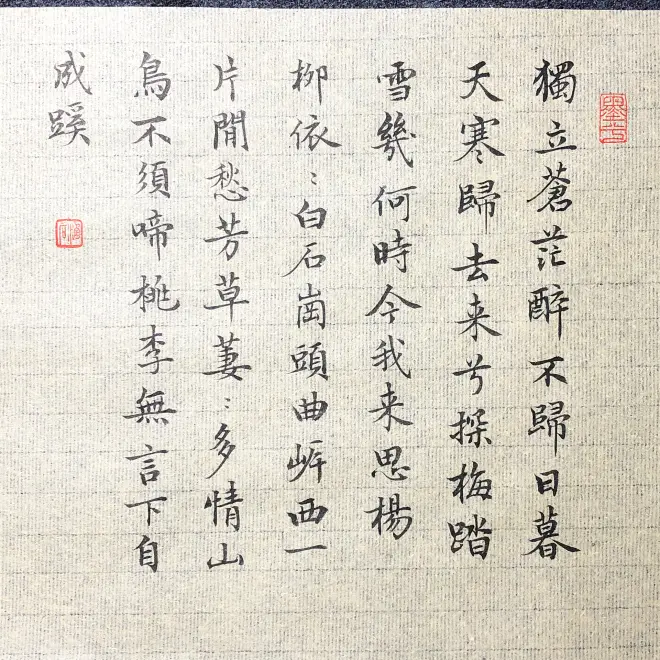 獨立蒼茫醉不歸日暮
天寒歸去来兮探梅踏
雪幾何時今我来思楊
柳依〻白石崗頭曲岸西一
片閒愁芳草萋〻多情山
鳥不須啼桃李無言下自
成蹊